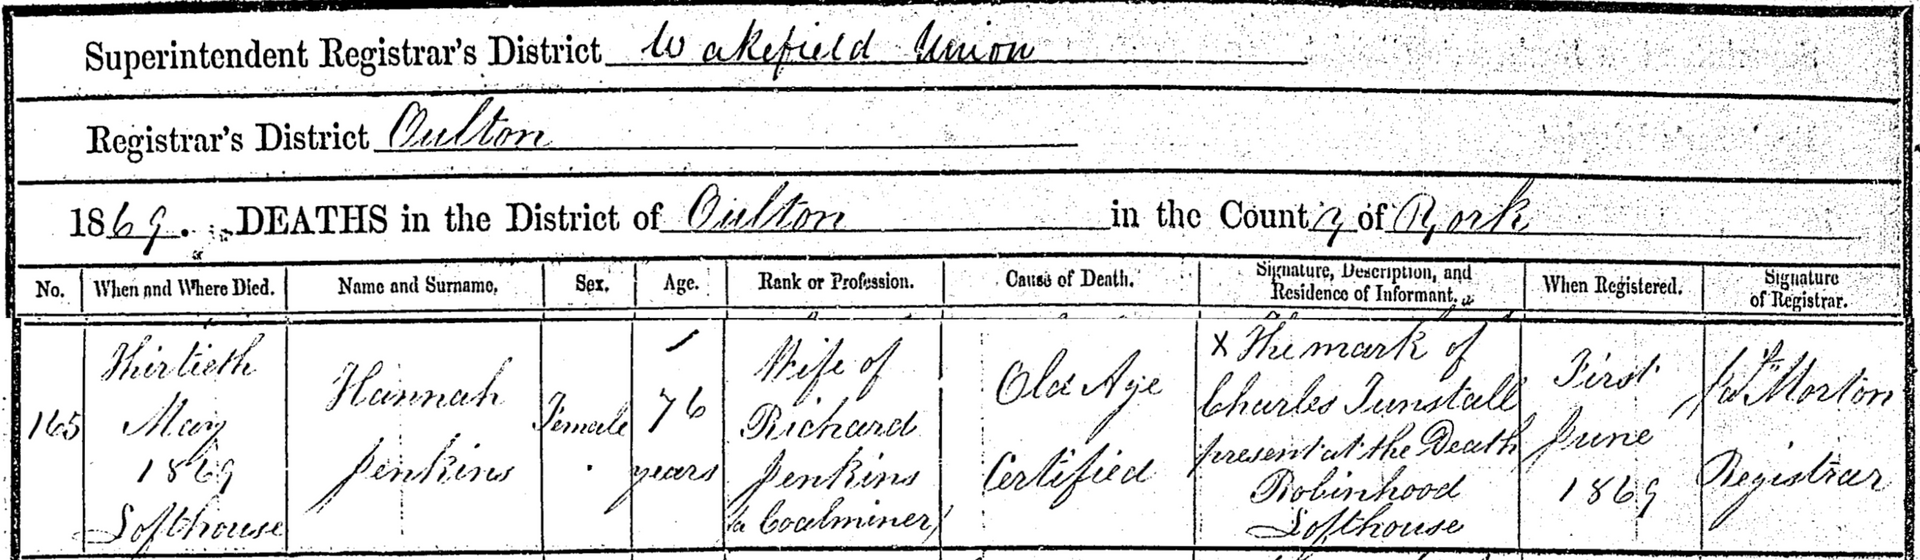 Superintendent Registrar's District Wakefield Union
Registrar's District Oulton
1869. DEATHS in the District of Oulton in the County of York
No. When and Where Died. Name and Surname. Sex. Age. Rank or Profession. Cause of Death. Signature, Description, and Residence of Informant. When Registered. Signature of Registrar.
165
Thirtieth
May
1869
Lofthouse
Hannah
Jenkins
Female
76
years
Wife of
Richard
Jenkins
(a Coalminer)
Old Age
Certified
X The mark of
Charles Tunstall
present at the Death
Robinhood
Lofthouse
First
June
1869
Morton
Registrar